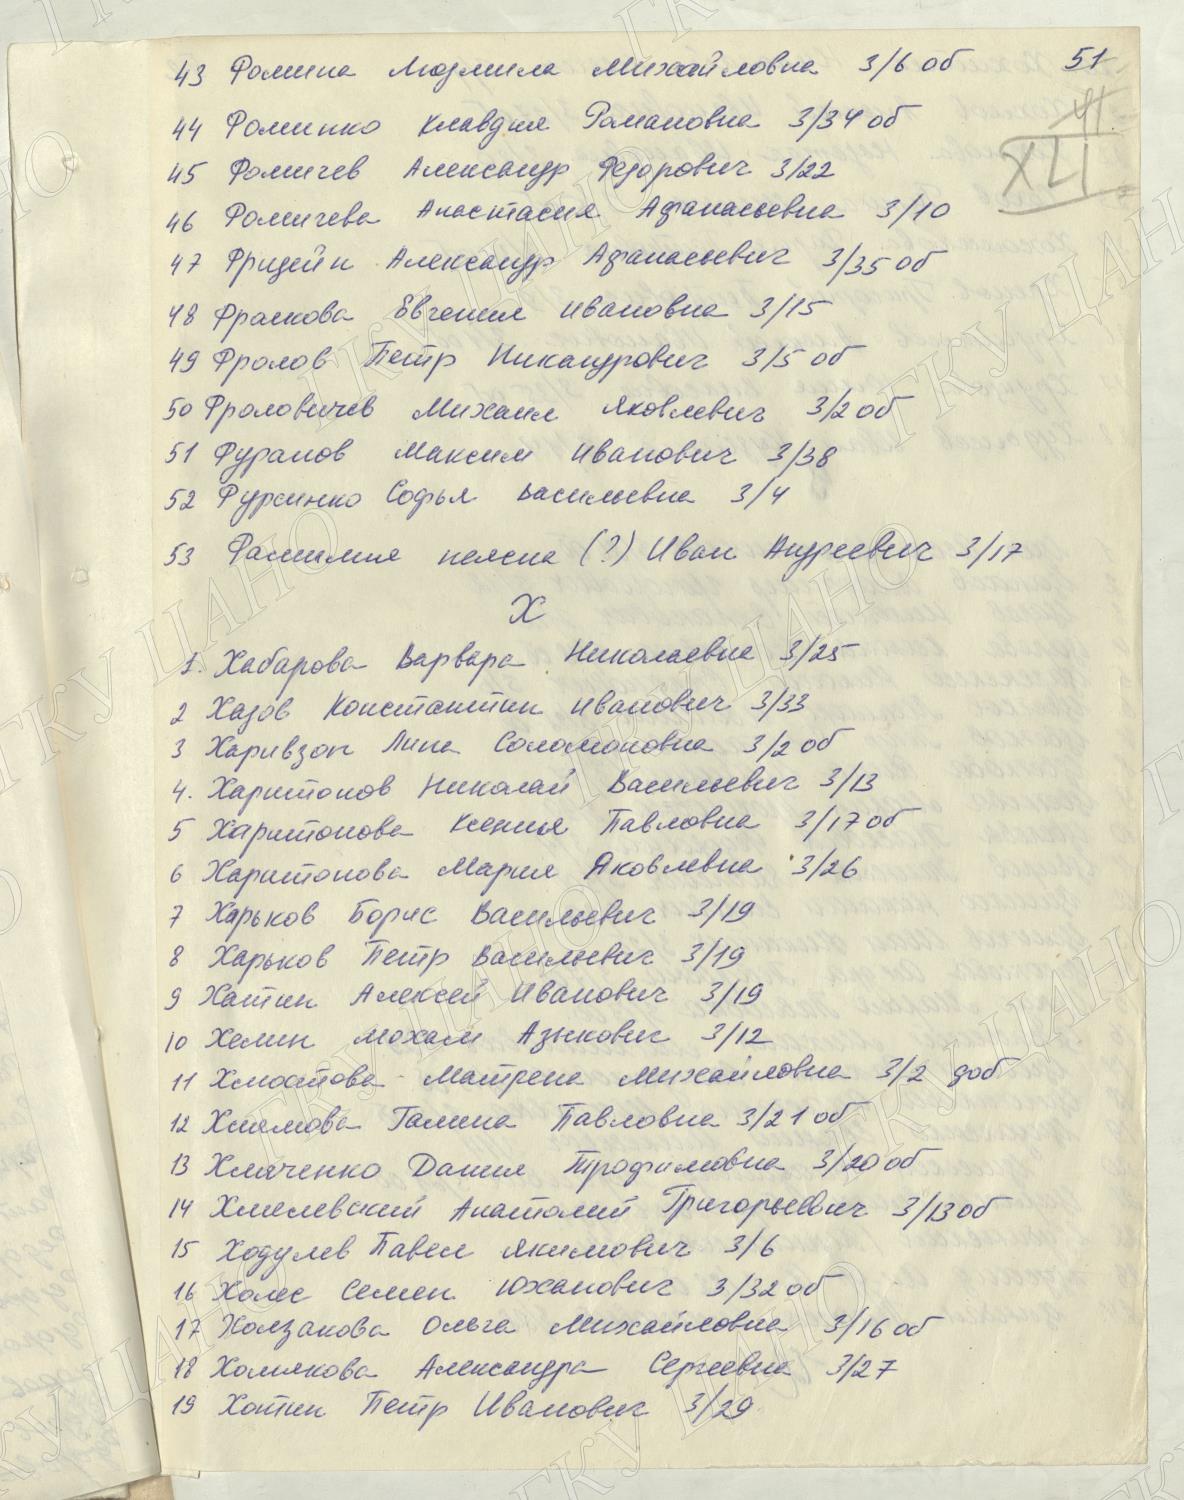 43 Фомина Людмила Михайловна 3/6 об 51
44 Фоминко Клавдия Романовна 3/34 об
XLI
45 Фомичев Александр Федорович 3/22
46 Фомичева Анастасия Афанасьевна 3/10
47 Фридейн Александр Афанасьевич 3/35 об
48 Фролкова Евгения Ивановна 3/15
49 Фролов Петр Никандрович 3/5 об
50 Фроловичев Михаил Яковлевич 3/2 об
51 Фуранов Максим Иванович 3/38
52 Фурсинко Софья Васильевна 3/4
53 Фамилия неясна (?) Иван Андреевич 3/17
Х
1. Хабарова Варвара Николаевна 3/25
2 Хазов Константин Иванович 3/33
3 Харивзон Лина Соломоновна 3/2 об
4. Харитонов Николай Васильевич 3/13
5 Харитонова Ксения Павловна 3/17 об
6 Харитонова Мария Яковлевна 3/26
7 Харьков Борис Васильевич 3/19
8 Харьков Петр Васильевич 3/19
9 Хатин Алексей Иванович 3/19
10 Хелин Мохам Азыкович 3/12
11 Хлопотова Матрена Михайловна 3/2 доб
12 Хлямова Галина Павловна 3/21 об
13 Хляченко Дания Трофимовна 3/20 об
14 Хмелевский Анатолий Григорьевич 3/13 об
15 Ходулев Павел Якимович 3/6
16 Холес Семен Юханович 3/32 об
17 Холзакова Ольга Михайловна 3/16 об
18 Хомякова Александра Сергеевна 3/27
19 Хотин Петр Иванович 3/29
ГКУ ЦАНО